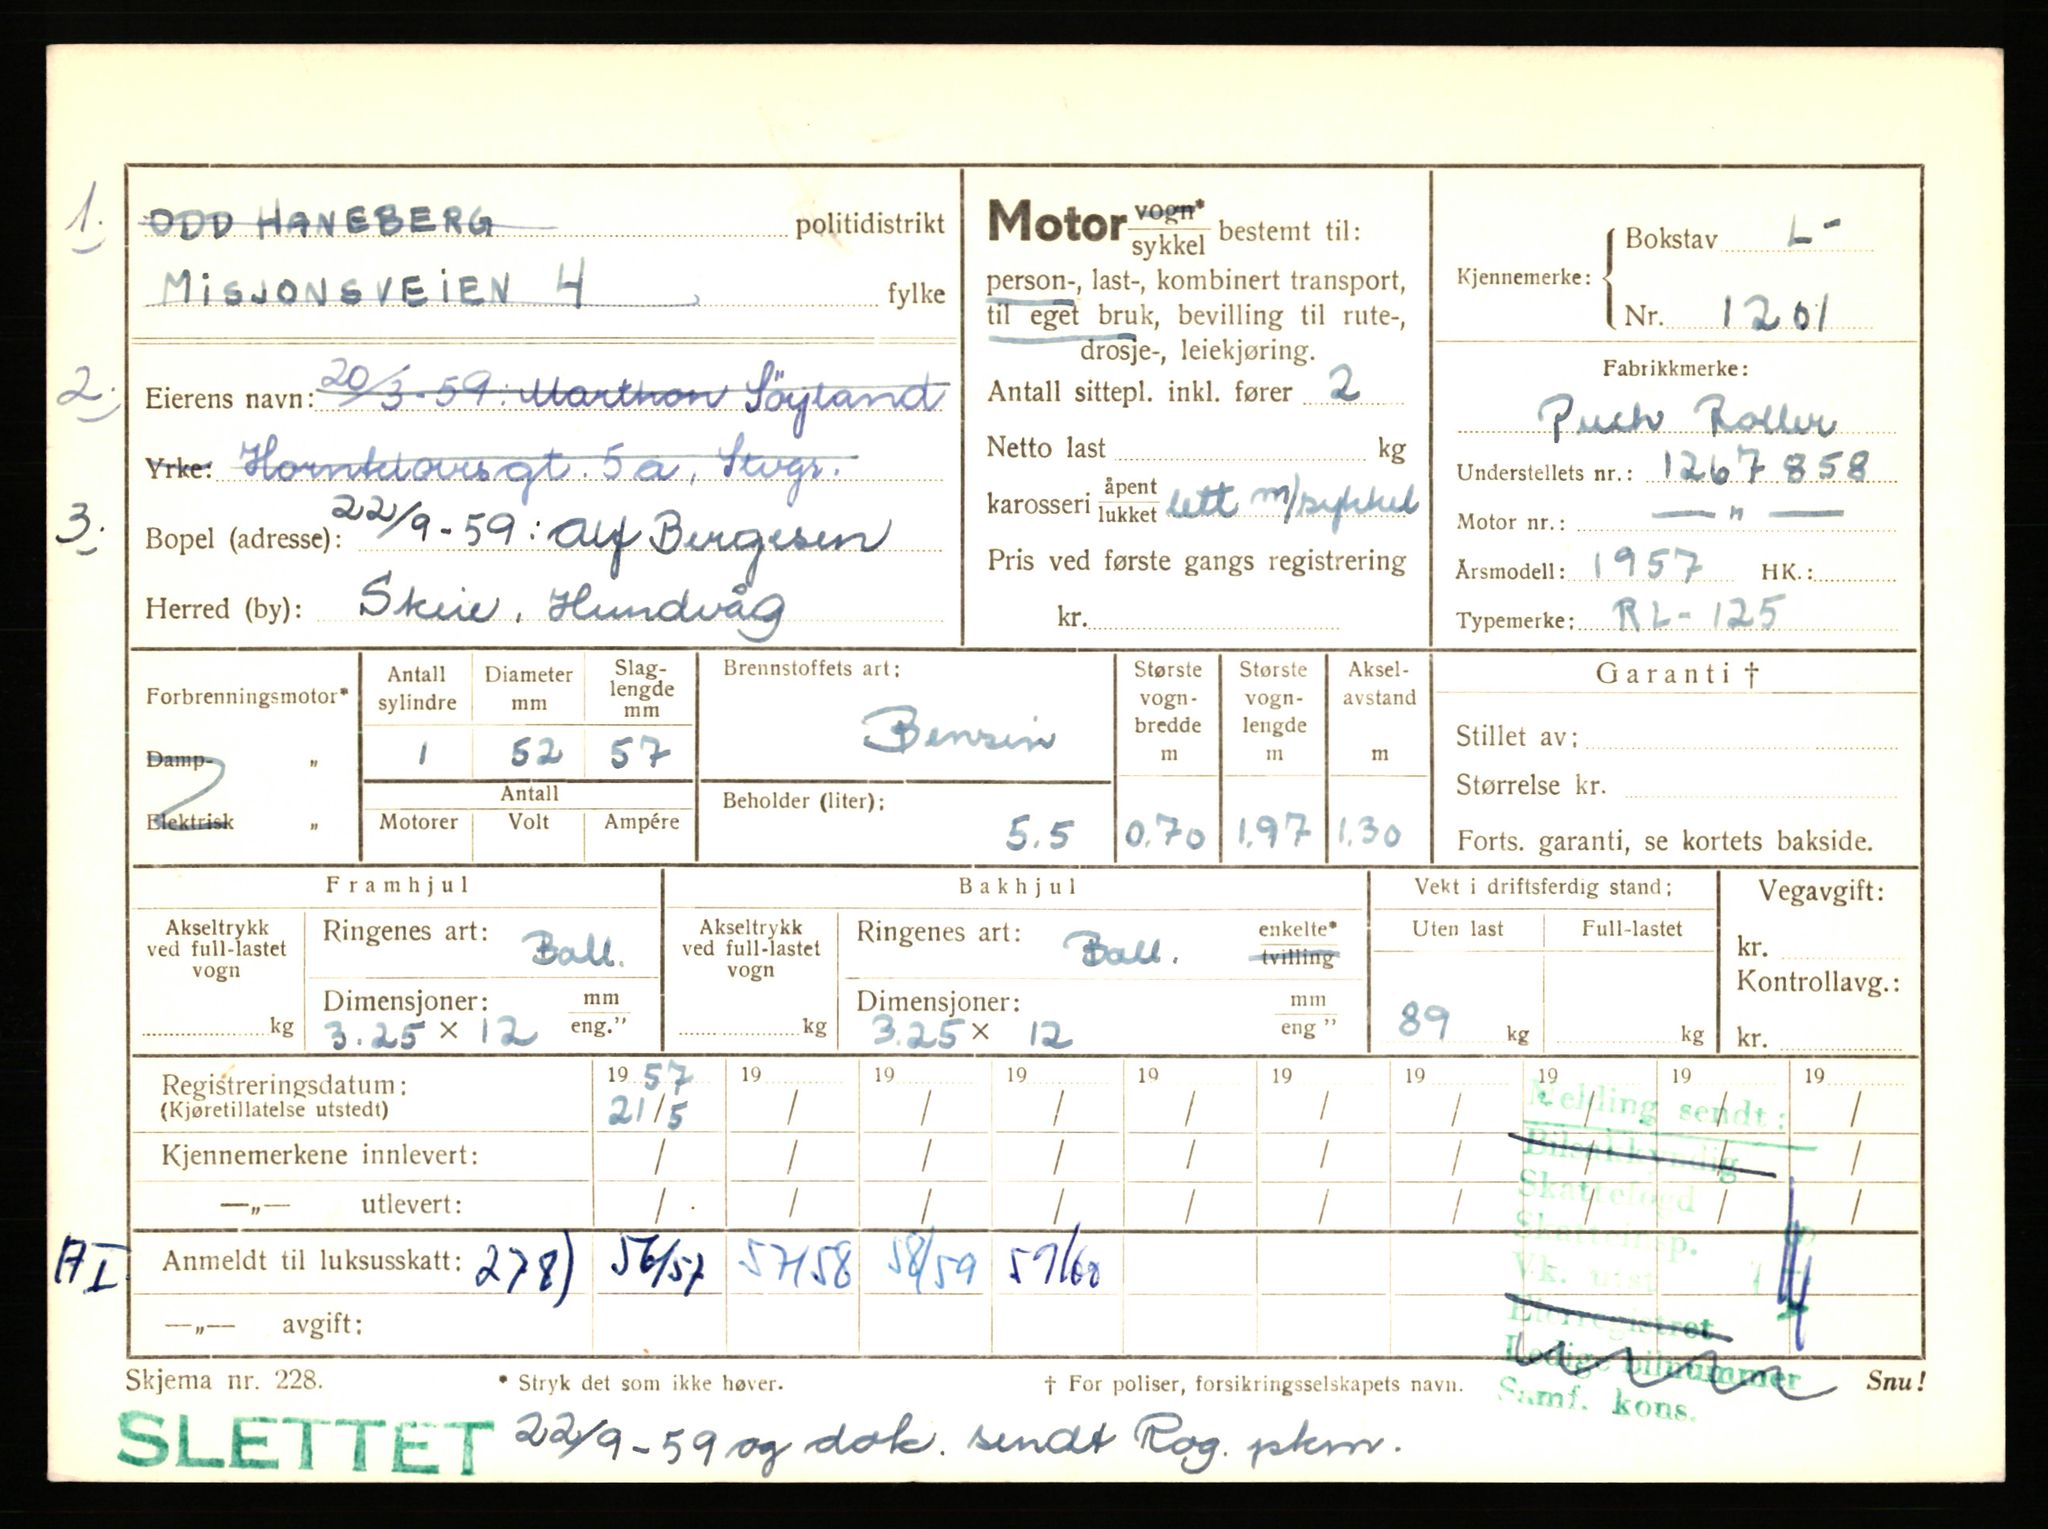 1. ODD HANEBERG politidistrikt
MISJONSVEIEN 4 fylke
2. Eierens navn: 20/3-59: Marthon Söyland
Yrke: Hornklovsgt. 5a, Stvgr.
3. Bopel (adresse): 22/9-59: Alf Bergesen
Herred (by): Skeie, Hundvåg
Motor vogn* / sykkel bestemt til:
person-, last-, kombinert transport,
til eget bruk, bevilling til rute-,
drosje-, leiekjøring.
Antall sittepl. inkl. fører 2
Netto last kg
karosseri åpent / lukket lett m/sykkel
Pris ved første gangs registrering
kr.
Kjennemerke: Bokstav L-
Nr. 1201
Fabrikkmerke:
Puch Roller
Understellets nr.: 1267858
Motor nr.: — " —
Årsmodell: 1957 HK.:
Typemerke: RL-125
Forbrenningsmotor*
Damp- „
Elektrisk „
Antall sylindre 1
Diameter mm 52
Slag-lengde mm 57
Antall
Motorer Volt Ampére
Brennstoffets art: Bensin
Beholder (liter): 5.5
Største vogn-bredde m 0.70
Største vogn-lengde m 1.97
Aksel-avstand m 1.30
Garanti †
Stillet av:
Størrelse kr.
Forts. garanti, se kortets bakside.
Framhjul
Akseltrykk ved full-lastet vogn kg
Ringenes art: Ball.
Dimensjoner: mm / eng."
3.25 × 12
Bakhjul
Akseltrykk ved full-lastet vogn kg
Ringenes art: Ball. enkelte* / tvilling
Dimensjoner: mm / eng "
3.25 × 12
Vekt i driftsferdig stand:
Uten last Full-lastet
89 kg kg
Vegavgift:
kr.
Kontrollavg.:
kr.
Registreringsdatum: 19 57 19 19 19 19 19 19 19 19 19
(Kjøretillatelse utstedt) 21/5 / / / / / / / / /
Kjennemerkene innlevert: / / / / / / / / / /
—„— utlevert: / / / / / / / / / /
Anmeldt til luksusskatt: 278) 56/57 57/58 58/59 59/60
—„— avgift:
Melding sendt:
Bilsakkyndig
Skattefogd
Skatteinsp.
Vk. utst
Eierregistret
Ledige bilnummer
Samf. kons.
Skjema nr. 228. * Stryk det som ikke høver. † For poliser, forsikringsselskapets navn. Snu!
SLETTET 22/9-59 og dok. sendt Rog. pkm.